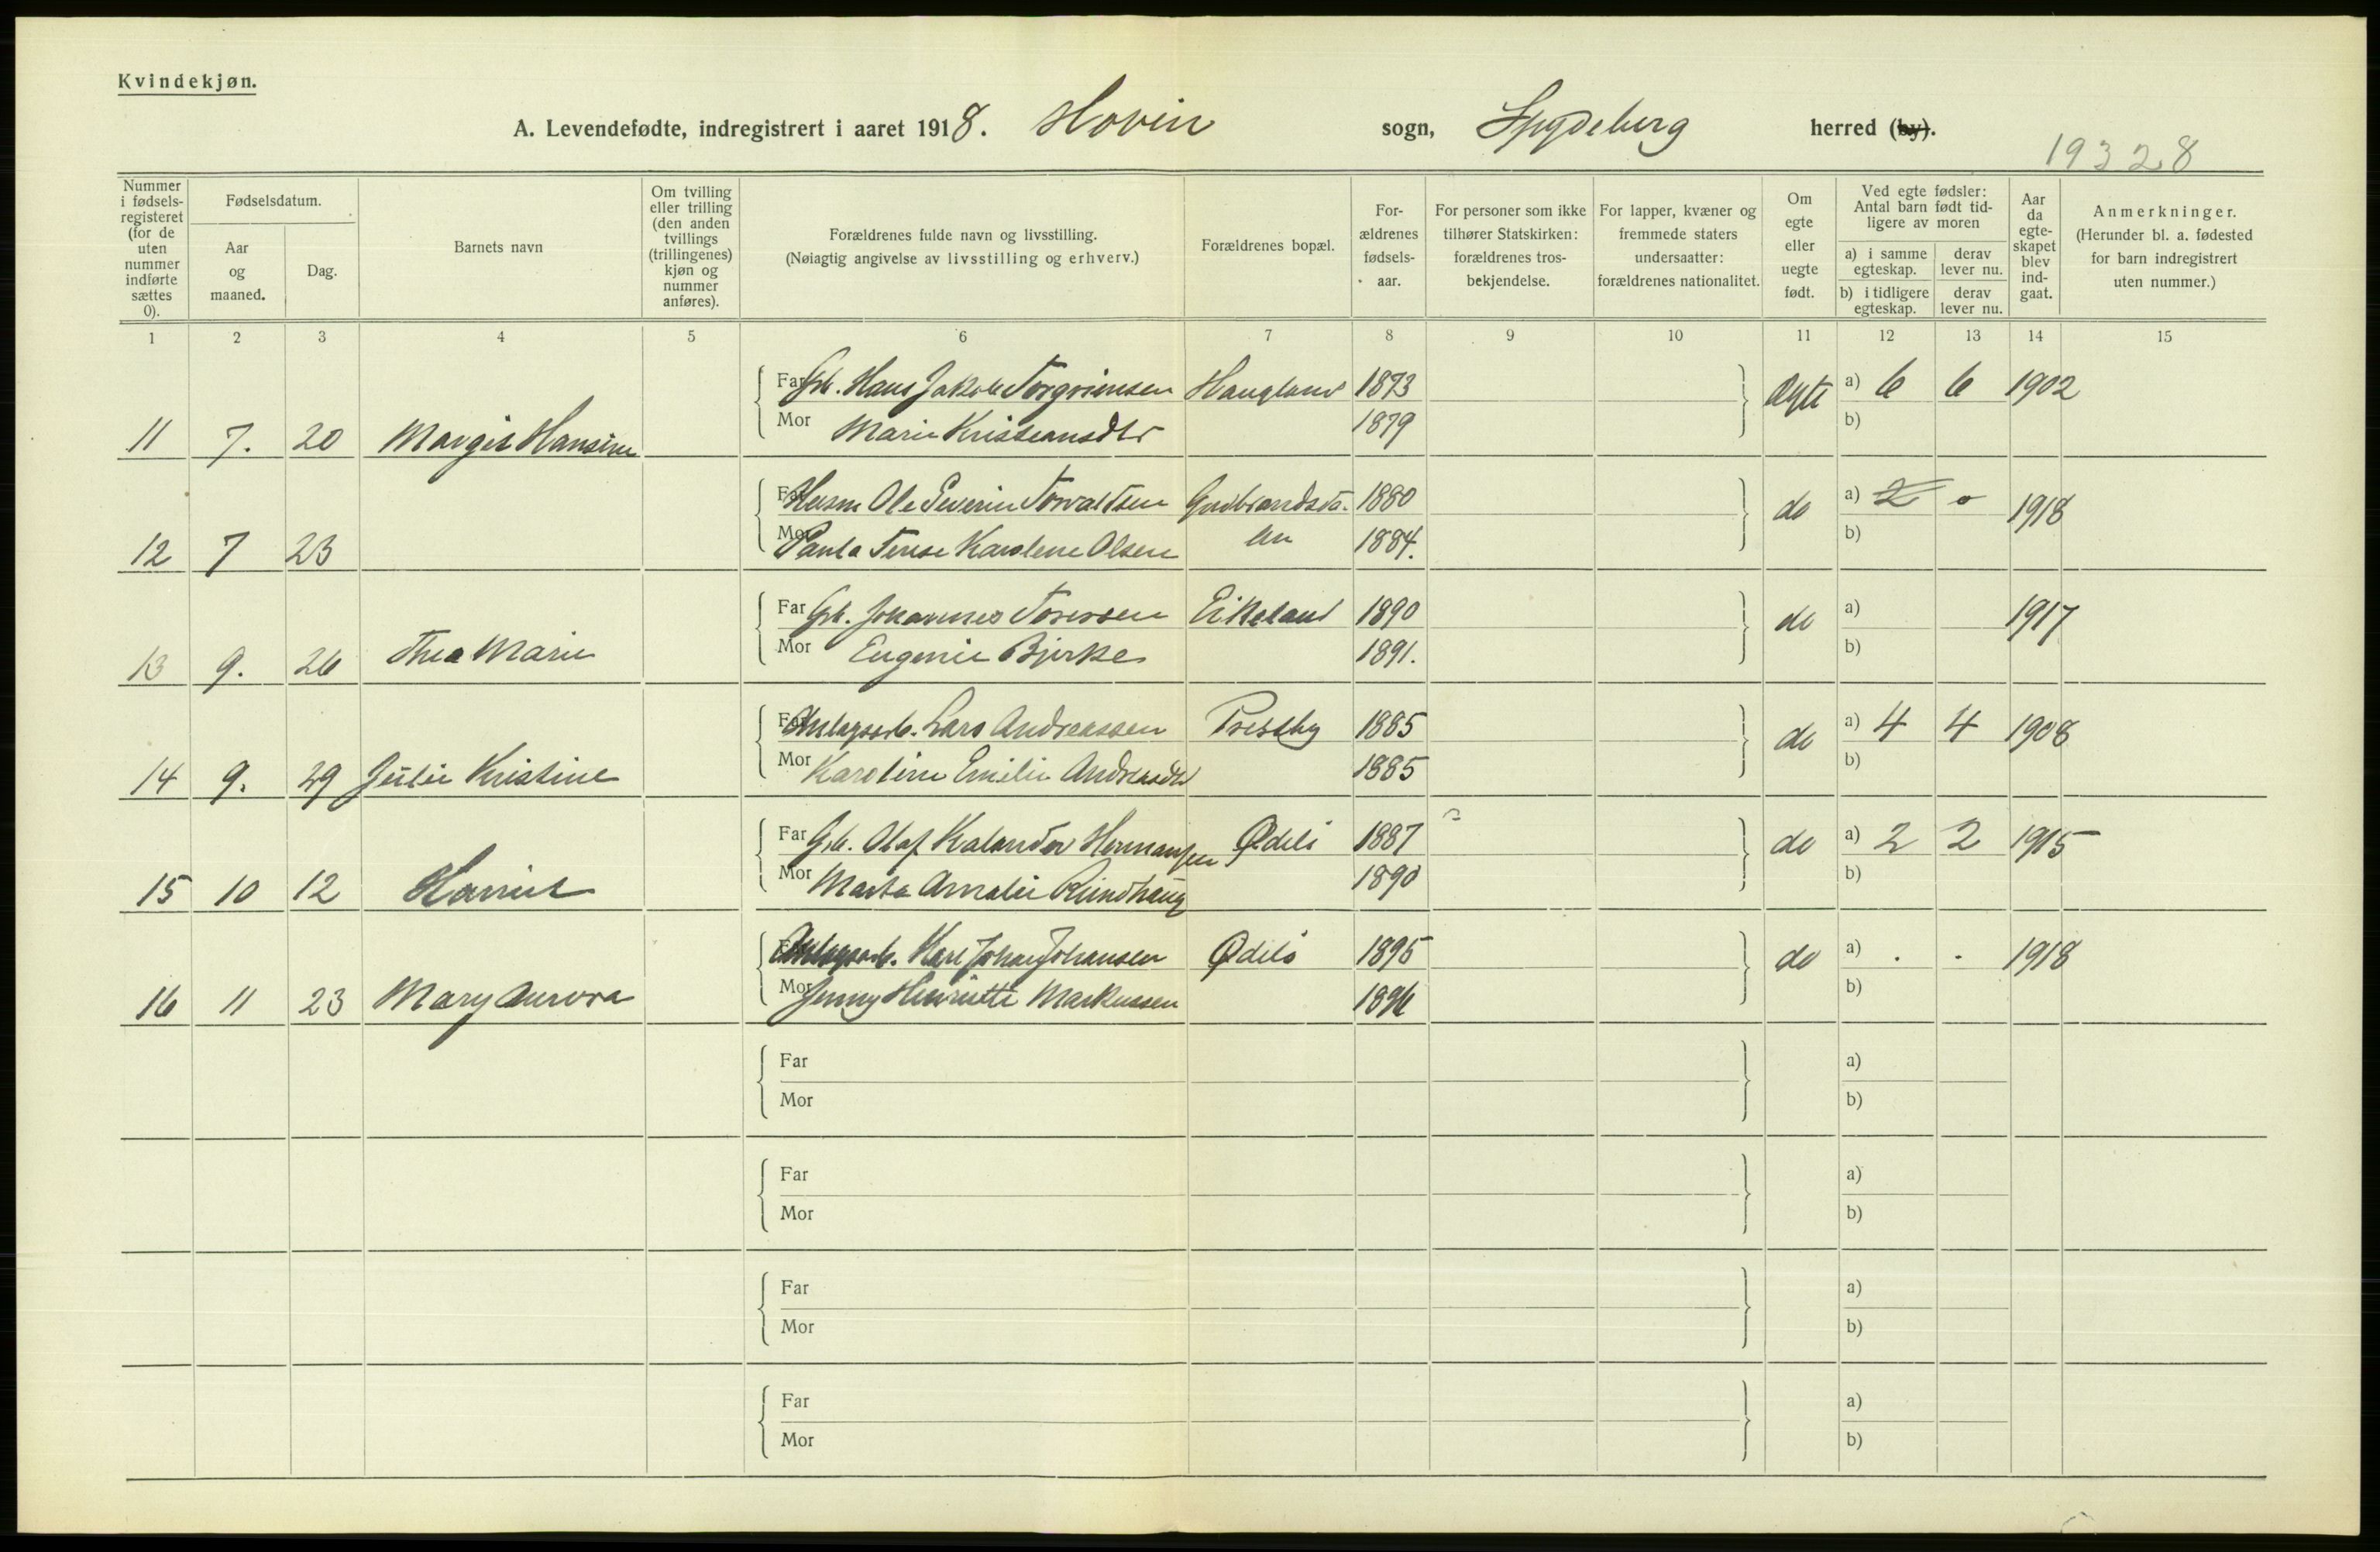 Kvindekjøn.
A. Levendefødte, indregistrert i aaret 1918. Hovin sogn, Spydeberg herred (by).
19328
Nummer i fødsels-registeret (for de uten nummer indførte sættes 0).
Fødselsdatum.
Aar og maaned.
Dag.
Barnets navn
Om tvilling eller trilling (den anden tvillings (trillingenes) kjøn og nummer anføres).
Forældrenes fulde navn og livsstilling.
(Nøiagtig angivelse av livsstilling og erhverv.)
Forældrenes bopæl.
For-ældrenes fødsels-aar.
For personer som ikke tilhører Statskirken: forældrenes tros-bekjendelse.
For lapper, kvæner og fremmede staters undersaatter: forældrenes nationalitet.
Om egte eller uegte født.
Ved egte fødsler: Antal barn født tid-ligere av moren
a) i samme egteskap.
derav lever nu.
b) i tidligere egteskap.
derav lever nu.
Aar da egte-skapet blev ind-gaat.
Anmerkninger.
(Herunder bl. a. fødested for barn indregistrert uten nummer.)
1 2 3 4 5 6 7 8 9 10 11 12 13 14 15
Far Gb. Hans Jakob Torgrimsen Haugland 1873 Ægte a) 6 6 1902
11 7. 20 Margit Hansine Mor Marie Kristiansdtr 1879 b)
Far Husm Ole Severin Torvaldsen Gudbrandsda- 1880 do a) 2 0 1918
12 7 23 Mor Paula Terese Karolene Olsen len 1884. b)
Far Gb. Johannes Toressen Eikeland 1890 do a) 1917
13 9. 26 Thea Marie Mor Eugenie Bjerke 1891. b)
Far Anlægsarb. Lars Andreassen Prestby 1885 do a) 4 4 1908
14 9. 29 Julie Kristine Mor Karoline Emilie Andreasdtr 1885 b)
Far Gb. Olaf Kalander Hermansen Ødeli 1887 do a) 2 2 1915
15 10 12 Harriet Mor Marta Amalie Rundhaug 1890 b)
Far Anlægsarb. Karl Johan Johansen Ødeli 1895 do a) . . 1918
16 11 23 Mary Aurora Mor Jenny Henriette Markussen 1896 b)
Far a)
Mor b)
Far a)
Mor b)
Far a)
Mor b)
Far a)
Mor b)